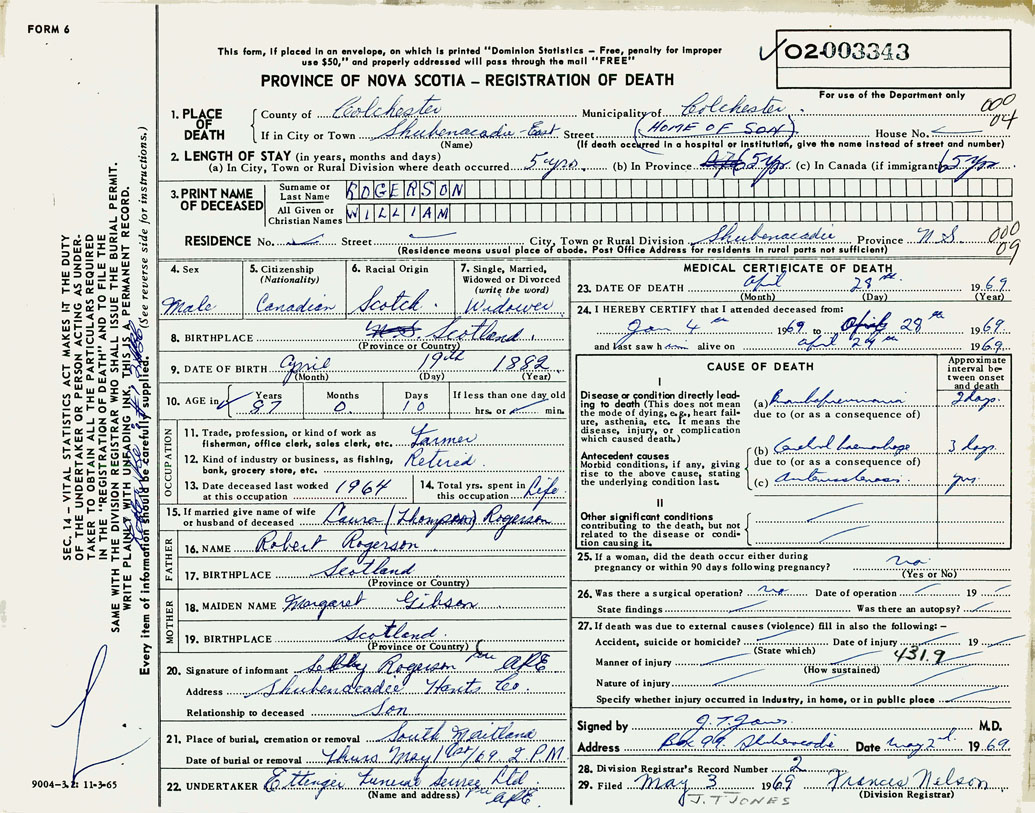 FORM 6
This form, if placed in an envelope, on which is printed "Dominion Statistics – Free, penalty for improper
use $50," and properly addressed will pass through the mail "FREE"
PROVINCE OF NOVA SCOTIA – REGISTRATION OF DEATH
✓02-003343
For use of the Department only
000
04
1. PLACE OF DEATH { County of Colchester Municipality of Colchester
If in City or Town Shubenacadie-East Street (HOME OF SON) House No.
(Name) (If death occurred in a hospital or institution, give the name instead of street and number)
2. LENGTH OF STAY (in years, months and days)
(a) In City, Town or Rural Division where death occurred 5 yrs. (b) In Province 65 yrs (c) In Canada (if immigrant) 65 yrs
3. PRINT NAME OF DECEASED { Surname or Last Name ROGERSON
All Given or Christian Names WILLIAM
RESIDENCE No. Street City, Town or Rural Division Shubenacadie Province N.S.
(Residence means usual place of abode. Post Office Address for residents in rural parts not sufficient)
000
09
4. Sex Male
5. Citizenship (Nationality) Canadian
6. Racial Origin Scotch.
7. Single, Married, Widowed or Divorced (write the word) Widower
8. BIRTHPLACE N.S. Scotland.
(Province or Country)
9. DATE OF BIRTH April 19th 1882
(Month) (Day) (Year)
10. AGE in Years 87 Months 0 Days 10 If less than one day old hrs. or min.
OCCUPATION
11. Trade, profession, or kind of work as fisherman, office clerk, sales clerk, etc. Farmer
12. Kind of industry or business, as fishing, bank, grocery store, etc. Retired.
13. Date deceased last worked at this occupation 1964
14. Total yrs. spent in this occupation Life
15. If married give name of wife or husband of deceased Laura (Thompson) Rogerson
FATHER
16. NAME Robert Rogerson
17. BIRTHPLACE Scotland
(Province or Country)
MOTHER
18. MAIDEN NAME Margaret Gibson
19. BIRTHPLACE Scotland.
(Province or Country)
20. Signature of informant Rogerson per APE
Address Shubenacadie Hants Co.
Relationship to deceased Son
21. Place of burial, cremation or removal South Maitland
Date of burial or removal Thurs May 1st/69. 2 P.M.
22. UNDERTAKER Ettinger Funeral Service Ltd.
(Name and address) per APE
MEDICAL CERTIFICATE OF DEATH
23. DATE OF DEATH April 28th 1969
(Month) (Day) (Year)
24. I HEREBY CERTIFY that I attended deceased from:
Jan 4th 1969 to April 28th 1969
and last saw him alive on April 1969
CAUSE OF DEATH
Approximate interval between onset and death
I
Disease or condition directly leading to death (This does not mean the mode of dying, e.g., heart failure, asthenia, etc. It means the disease, injury, or complication which caused death.)
(a) Bronchopneumonia 2 days
due to (or as a consequence of)
Antecedent causes
Morbid conditions, if any, giving rise to the above cause, stating the underlying condition last.
(b) Cerebral haemorrhage 3 days
due to (or as a consequence of)
(c) Arteriosclerosis yrs.
II
Other significant conditions
contributing to the death, but not related to the disease or condition causing it.
25. If a woman, did the death occur either during pregnancy or within 90 days following pregnancy? no
(Yes or No)
26. Was there a surgical operation? no Date of operation 19
State findings Was there an autopsy?
27. If death was due to external causes (violence) fill in also the following:–
Accident, suicide or homicide? Date of injury 19
(State which) 431.9
Manner of injury
(How sustained)
Nature of injury
Specify whether injury occurred in industry, in home, or in public place
Signed by J. T. Jones M.D.
Address Box 99. Shubenacadie Date May 2nd 1969.
28. Division Registrar's Record Number 2
29. Filed May 3 1969 Frances Nelson
(Division Registrar)
J. T JONES
SEC. 14 – VITAL STATISTICS ACT MAKES IT THE DUTY
OF THE UNDERTAKER OR PERSON ACTING AS UNDER-
TAKER TO OBTAIN ALL THE PARTICULARS REQUIRED
IN THE "REGISTRATION OF DEATH" AND TO FILE THE
SAME WITH THE DIVISION REGISTRAR WHO SHALL ISSUE THE BURIAL PERMIT.
WRITE PLAINLY WITH UNFADING INK. THIS IS A PERMANENT RECORD.
Every item of information should be carefully supplied. (See reverse side for instructions.)
9004-3.2: 11-3-65